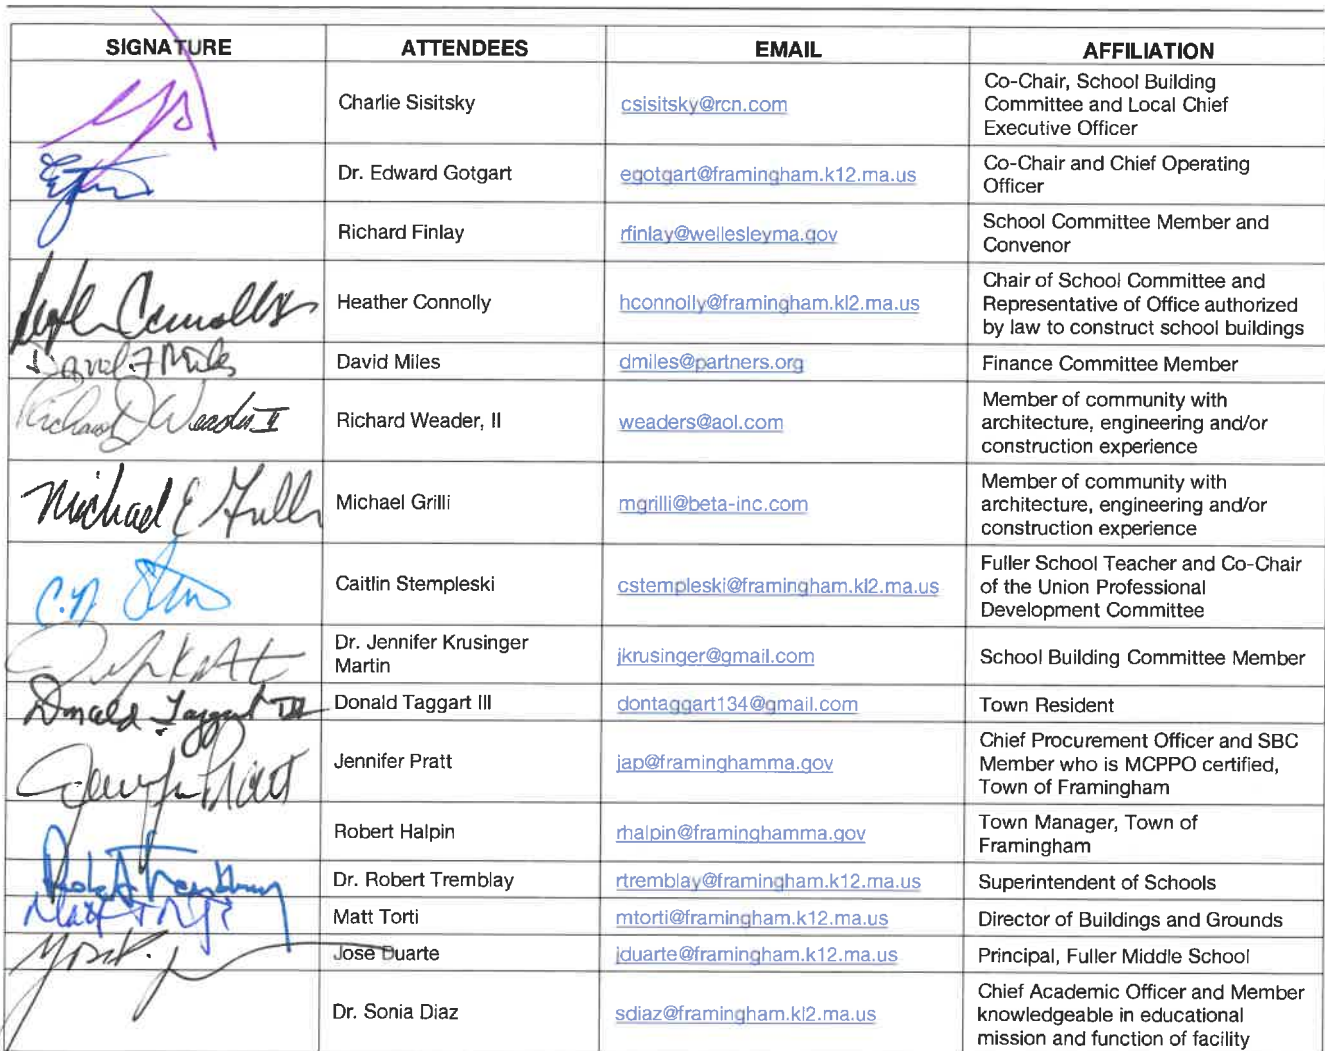 SIGNATURE ATTENDEES EMAIL AFFILIATION
Charlie Sisitsky csisitsky@rcn.com Co-Chair, School Building
Committee and Local Chief
Executive Officer
Dr. Edward Gotgart egotgart@framingham.k12.ma.us Co-Chair and Chief Operating
Officer
Richard Finlay rfinlay@wellesleyma.gov School Committee Member and
Convenor
Heather Connolly hconnolly@framingham.kl2.ma.us Chair of School Committee and
Representative of Office authorized
by law to construct school buildings
David F Miles David Miles dmiles@partners.org Finance Committee Member
Richard D Weader II Richard Weader, II weaders@aol.com Member of community with
architecture, engineering and/or
construction experience
Michael E Grilli Michael Grilli mgrilli@beta-inc.com Member of community with
architecture, engineering and/or
construction experience
Caitlin Stempleski cstempleski@framingham.kl2.ma.us Fuller School Teacher and Co-Chair
of the Union Professional
Development Committee
Dr. Jennifer Krusinger
Martin jkrusinger@gmail.com School Building Committee Member
Donald Taggart III Donald Taggart III dontaggart134@gmail.com Town Resident
Jennifer Pratt Jennifer Pratt jap@framinghamma.gov Chief Procurement Officer and SBC
Member who is MCPPO certified,
Town of Framingham
Robert Halpin rhalpin@framinghamma.gov Town Manager, Town of
Framingham
Dr. Robert Tremblay rtremblay@framingham.k12.ma.us Superintendent of Schools
Matt Torti mtorti@framingham.k12.ma.us Director of Buildings and Grounds
Jose Duarte jduarte@framingham.k12.ma.us Principal, Fuller Middle School
Dr. Sonia Diaz sdiaz@framingham.kl2.ma.us Chief Academic Officer and Member
knowledgeable in educational
mission and function of facility